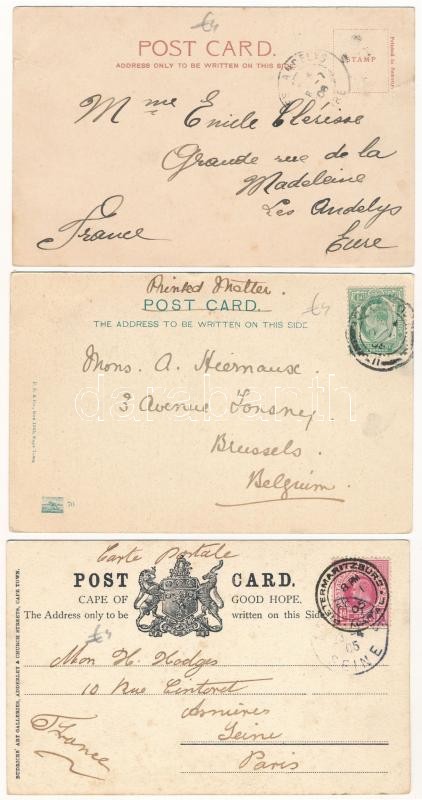 €4
POST CARD.
ADDRESS ONLY TO BE WRITTEN ON THIS SIDE.
STAMP
Printed in Saxony.
LES ANDELYS
EURE
Mme Emile Clérisse
Grande rue de la
Madeleine
Les Andelys
France Eure
Printed Matter.
€4
POST CARD.
THE ADDRESS TO BE WRITTEN ON THIS SIDE
Mons. A. Hiernaux.
3 Avenue Fonsny
Brussels.
Belgium.
70
darabanth
Carte Postale
POST CARD.
CAPE OF GOOD HOPE.
The Address only to be written on this Side
PIETERMARITZBURG
SEINE
€4
Mon H. Hodges
10 Rue Tintoret
Asnières
Seine
France
Paris
BUDRICKS' ART GALLERIES, ADDERLEY & CHURCH STREETS, CAPE TOWN.